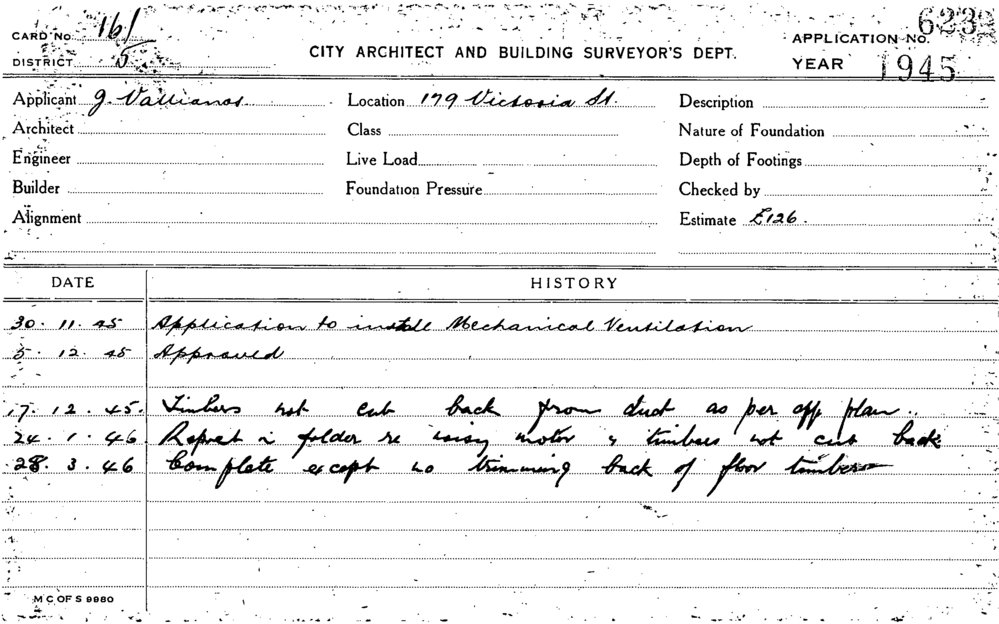 CARD No 16/
DISTRICT 5
CITY ARCHITECT AND BUILDING SURVEYOR'S DEPT.
APPLICATION No. 623
YEAR 1945
Applicant G. Vallianos Location 179 Victoria St. Description
Architect Class Nature of Foundation
Engineer Live Load Depth of Footings
Builder Foundation Pressure Checked by
Alignment Estimate £126.
DATE HISTORY
30. 11. 45 Application to install Mechanical Ventilation
5. 12. 45 Approved
17. 12. 45. Timbers not cut back from duct as per app plan.
24. 1. 46 Report in folder re noisy motor & timbers not cut back
28. 3. 46 Complete except no trimming back of floor timbers
M C OF S 9980